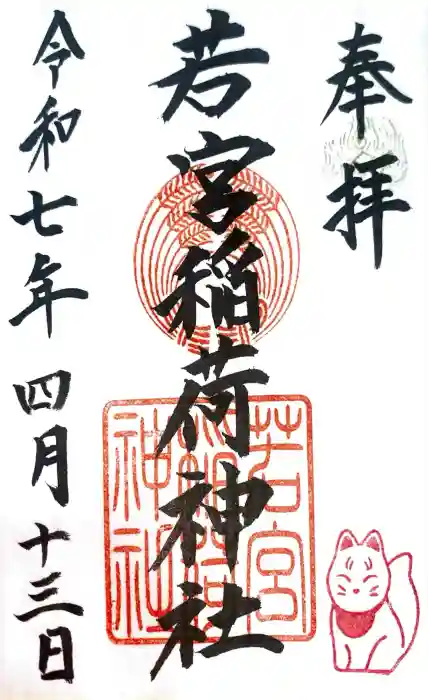 奉拝
若宮稲荷神社
令和七年 四月十三日
若宮
稲荷
神社